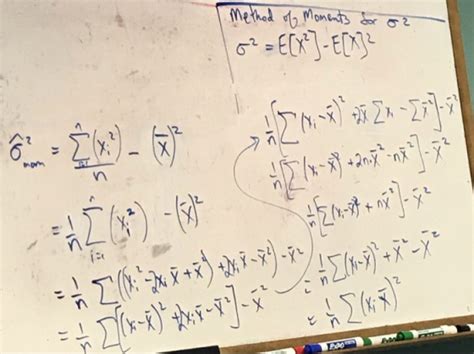 Method of Moments for σ2
σ² = E[X²] - E[X]²
σ̂²mom = Σⁿi=1(xi²)/n - (x̄)²
= 1/n Σⁿi=1 (xi²) - (x̄)²
= 1/n Σ((xi² - 2xi x̄ + x̄²) + 2xi x̄ - x̄²) - x̄²
= 1/n Σ[(xi - x̄)² + 2xi x̄ - x̄²] - x̄²
1/n[Σ(xi - x̄)² + 2x̄ Σxi - Σx̄²] - x̄²
1/n[Σ(xi - x̄)² + 2n x̄² - n x̄²] - x̄²
1/n[Σ(xi - x̄)² + n x̄²] - x̄²
= 1/n Σ(xi - x̄)² + x̄² - x̄²
= 1/n Σ(xi - x̄)²
EXPO